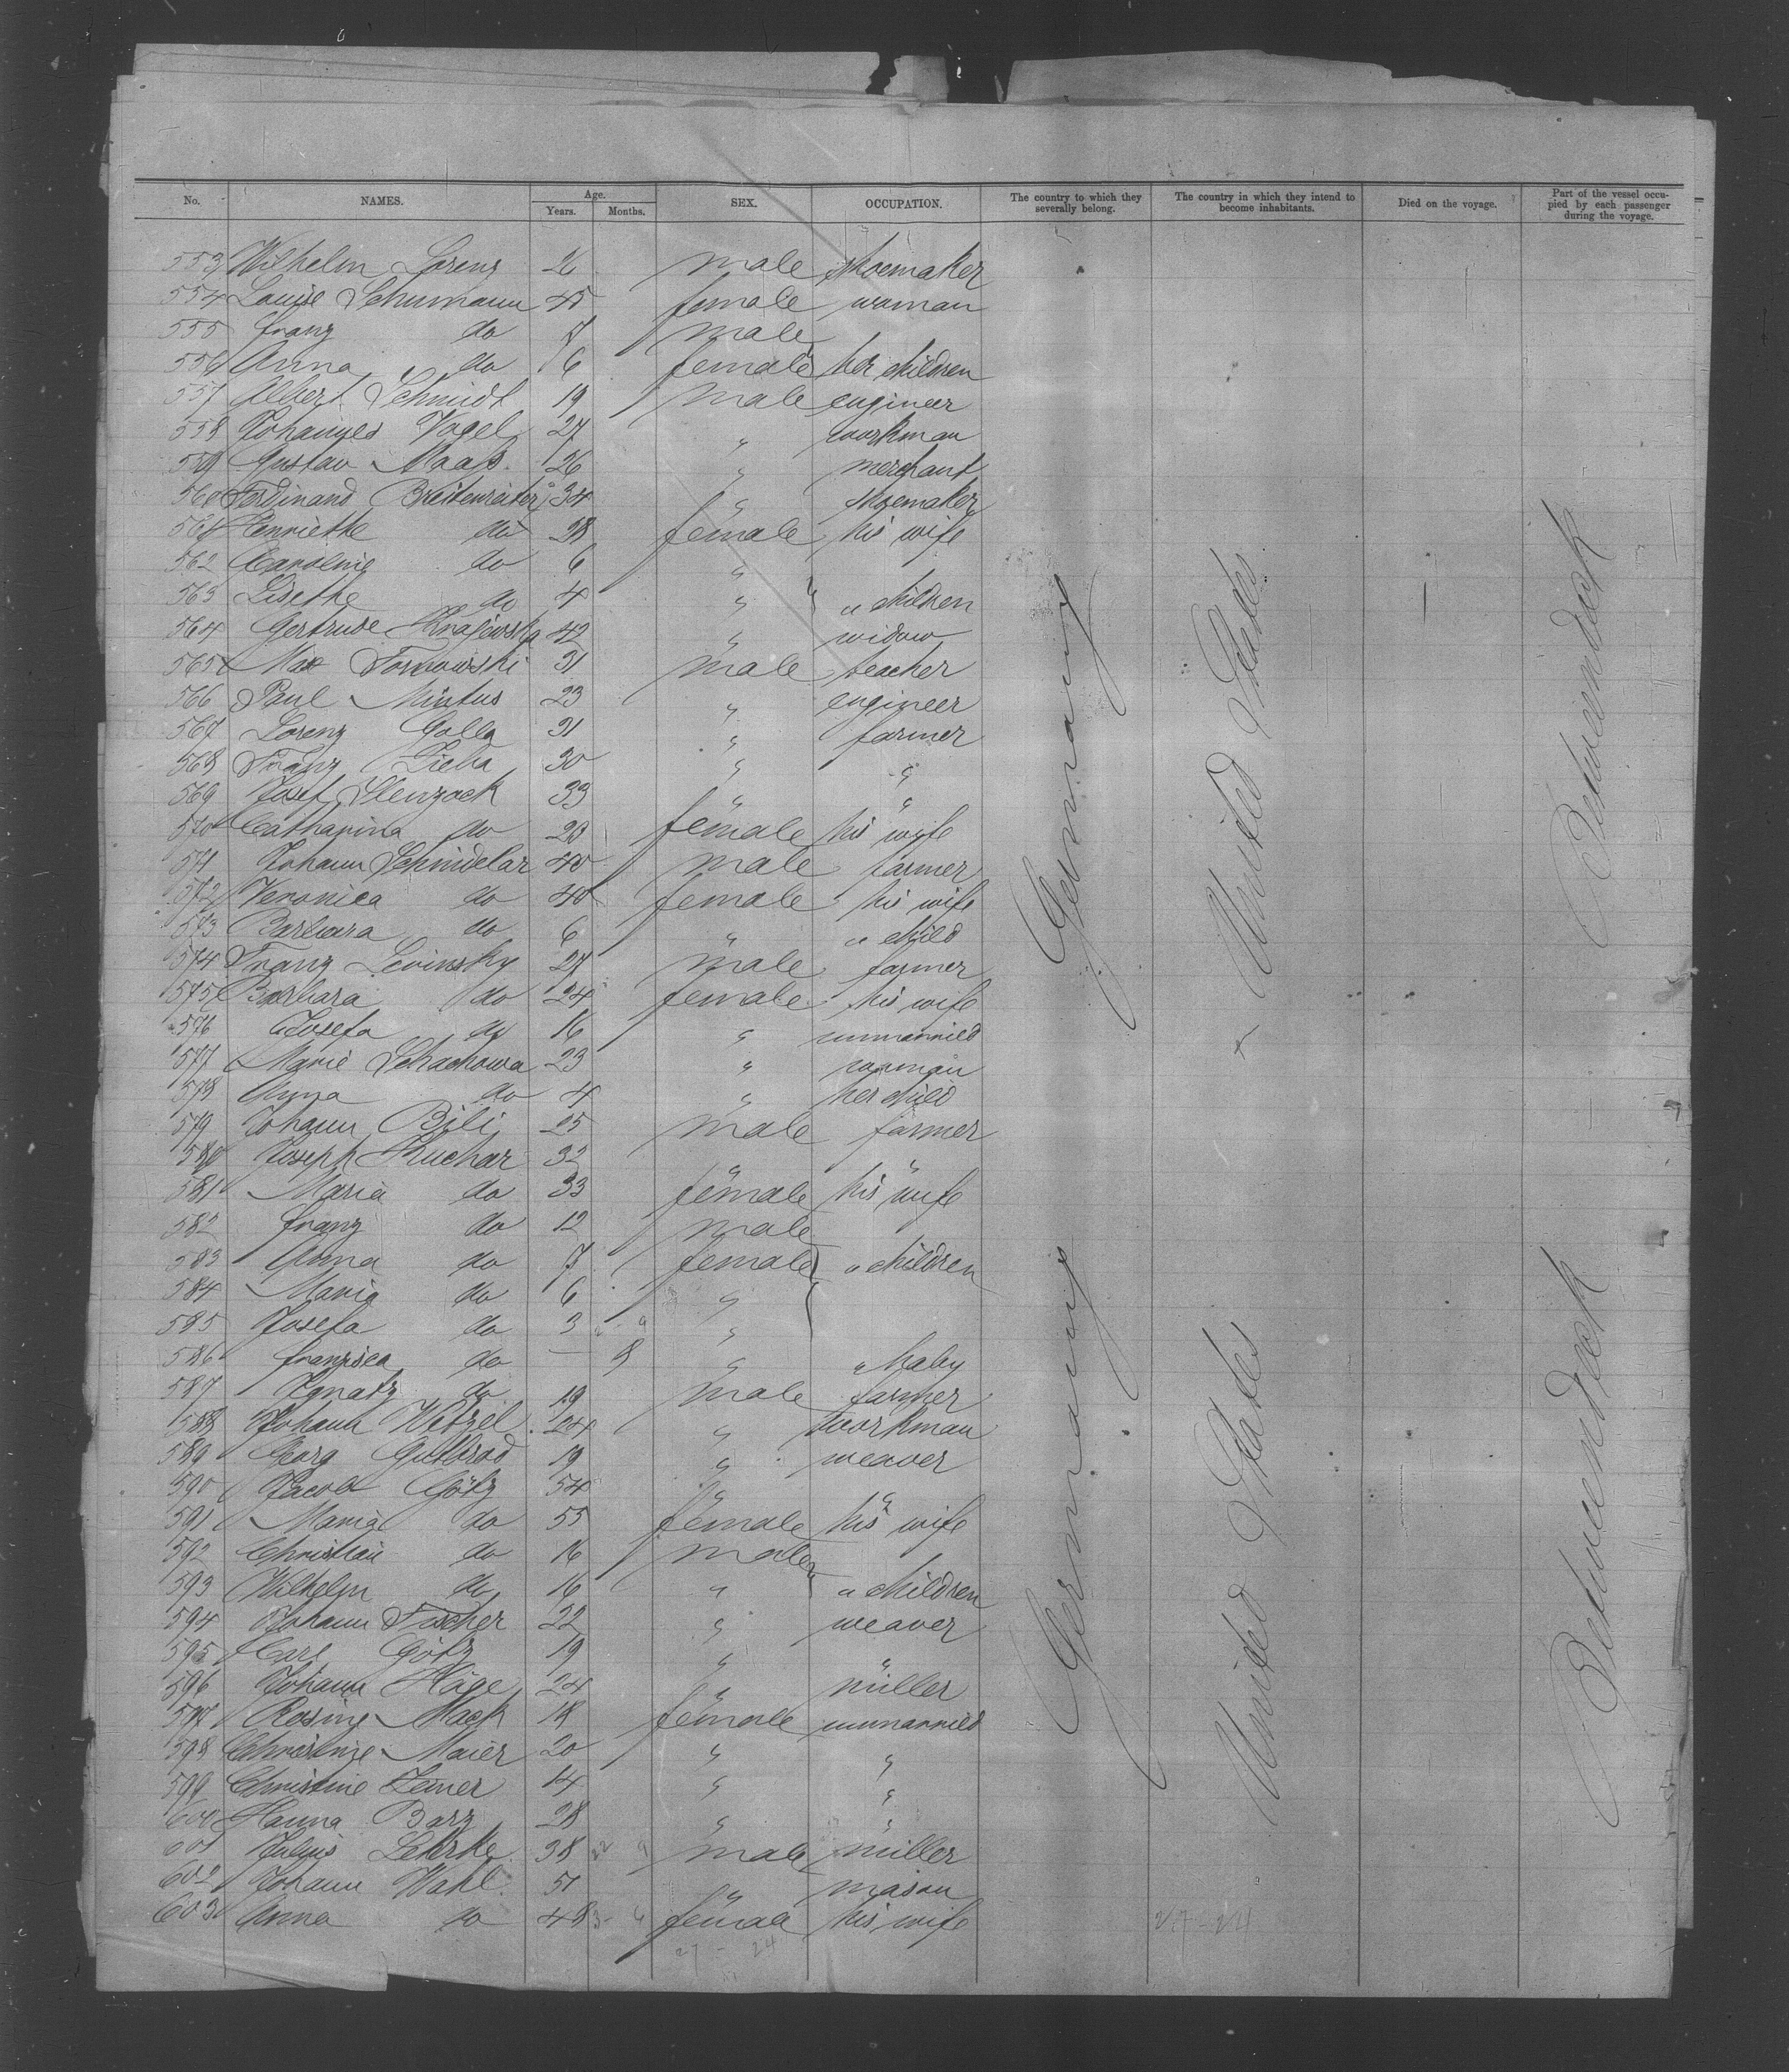 No. NAMES. Age. Years. Months. SEX. OCCUPATION. The country to which they severally belong. The country in which they intend to become inhabitants. Died on the voyage. Part of the vessel occupied by each passenger during the voyage.
553 Wilhelm Lorenz 26 male shoemaker
554 Louise Schumann 45 female woman
555 Franz do 7 male
556 Anna do 6 female her children
557 Albert Schmidt 19 male engineer
558 Johannes Vogel 27 " workman
559 Gustav Maaß 26 " merchant
560 Ferdinand Breitenreiter 34 " shoemaker
561 Henriette do 28 female his wife
562 Caroline do 6 "
563 Lisethe do 4 " " children
564 Gertrude Krajewska 42 " widow
565 Max Tornowski 31 male teacher
566 Paul Mintus 23 " engineer
567 Lorenz Golla 31 " farmer
568 Franz Zieha 30 " "
569 Josef Slenzock 33 " "
570 Catharina do 28 female his wife
571 Johann Schindelar 40 male farmer
572 Veronica do 40 female his wife
573 Barbara do 6 " " child
574 Franz Levinsky 27 male farmer
575 Barbara do 24 female his wife
576 Josefa do 16 " unmarried
577 Marie Schachowa 23 " woman
578 Anna do 4 " her child
579 Johann Bili 25 male farmer
580 Joseph Kuchar 32 " "
581 Maria do 33 female his wife
582 Franz do 12 male
583 Anna do 7 female " children
584 Maria do 6 "
585 Josefa do 3 "
586 Franzisca do — 8 " " baby
587 Ignatz do 19 male farmer
588 Johann Wetzel 24 " workman
589 Georg Gutbrod 19 " weaver
590 Jacob Götz 54 " "
591 Maria do 55 female his wife
592 Christian do 16 male
593 Wilhelm do 16 " " children
594 Johann Fischer 22 " weaver
595 Carl Götz 19 " "
596 Johann Häge 24 " miller
597 Rosine Mack 18 female unmarried
598 Christine Maier 20 " "
599 Christine Zeiner 14 " "
600 Hanna Barz 28 " "
601 Julius Lehrke 38 male miller
602 Johann Wahl 51 " mason
603 Anna do 48 female his wife
27 - 24
Germany
Germany
United States
United States
Betweendeck
Betweendeck